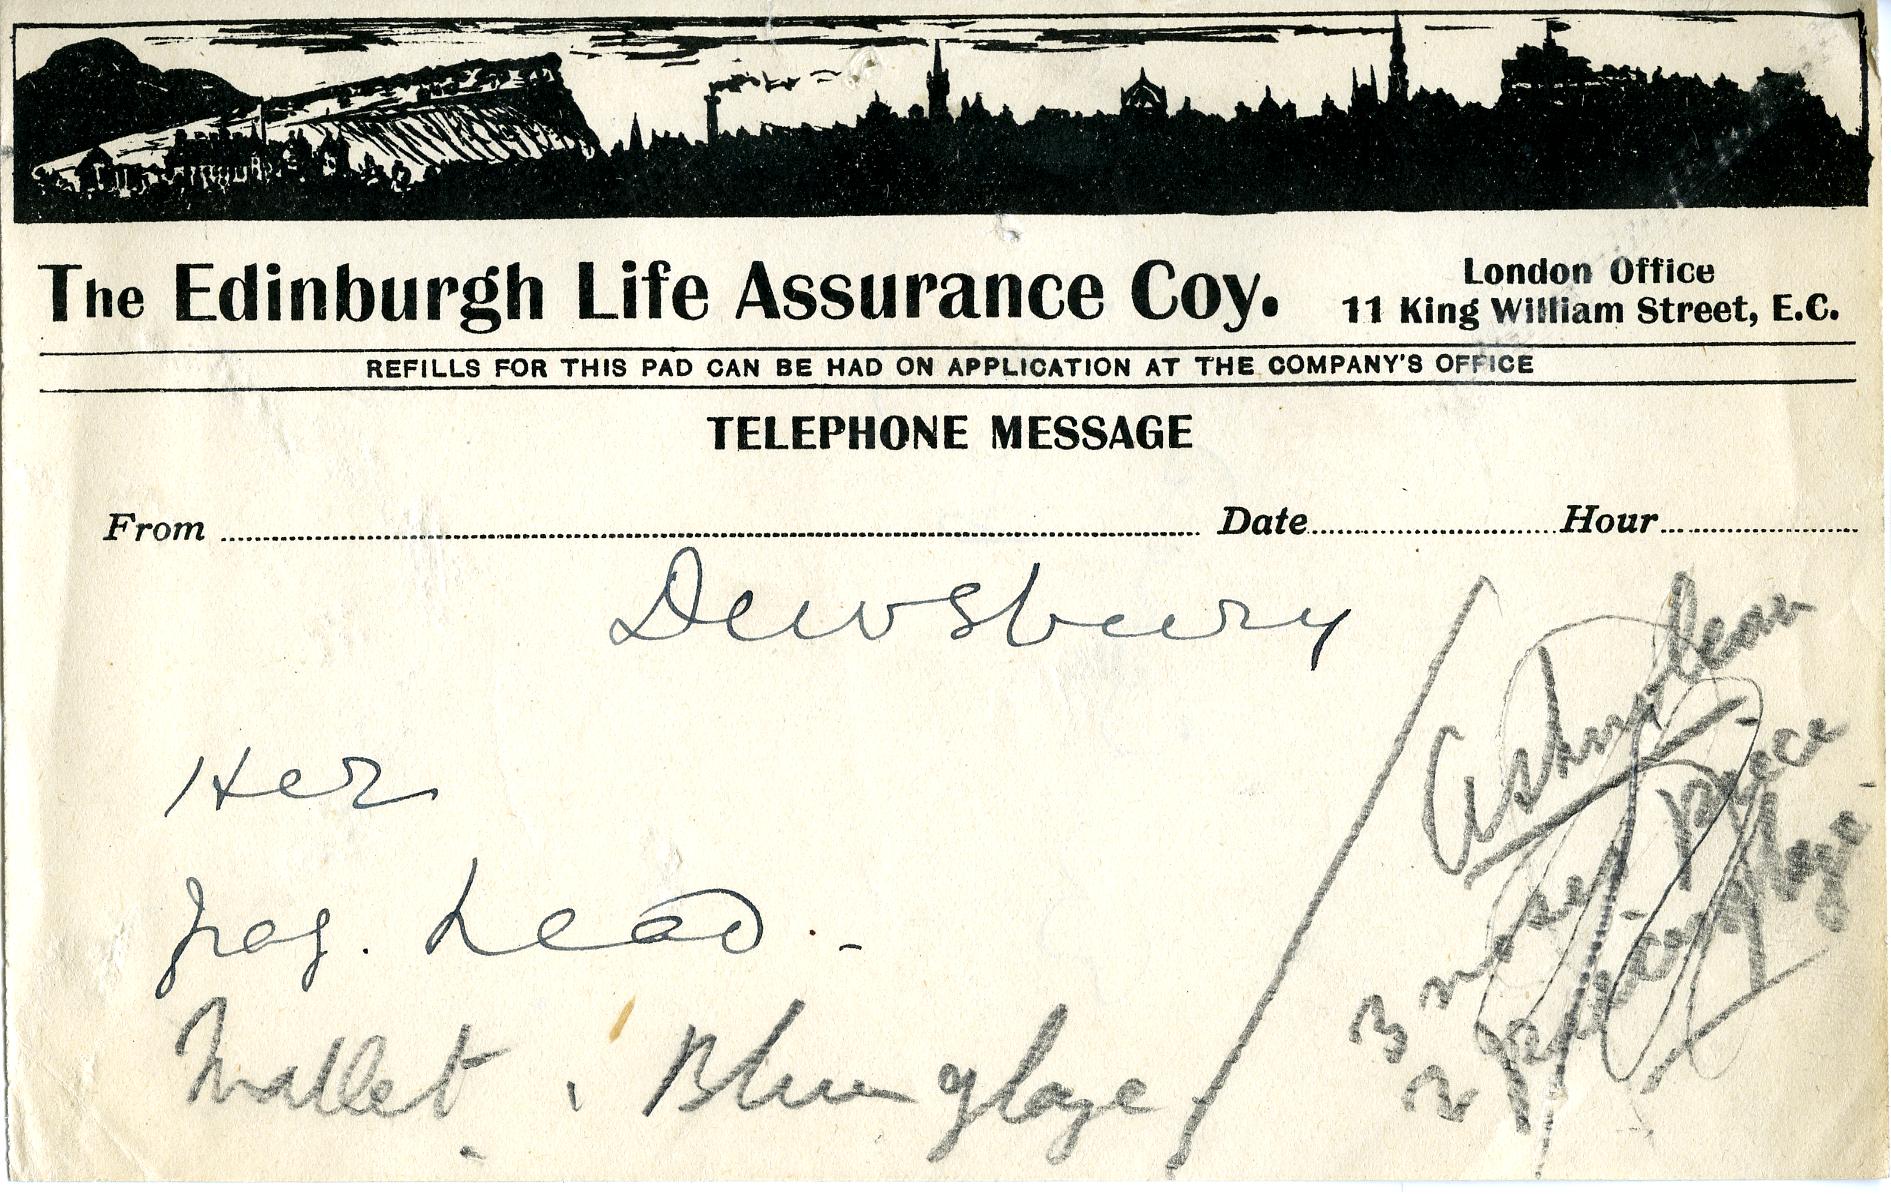 The Edinburgh Life Assurance Coy.
London Office
11 King William Street, E.C.
REFILLS FOR THIS PAD CAN BE HAD ON APPLICATION AT THE COMPANY'S OFFICE
TELEPHONE MESSAGE
From Date Hour
Dewsbury
Her
frag. head . -
Mallet . Blue glaze
Ashmolean
3 nose piece
2 pieces